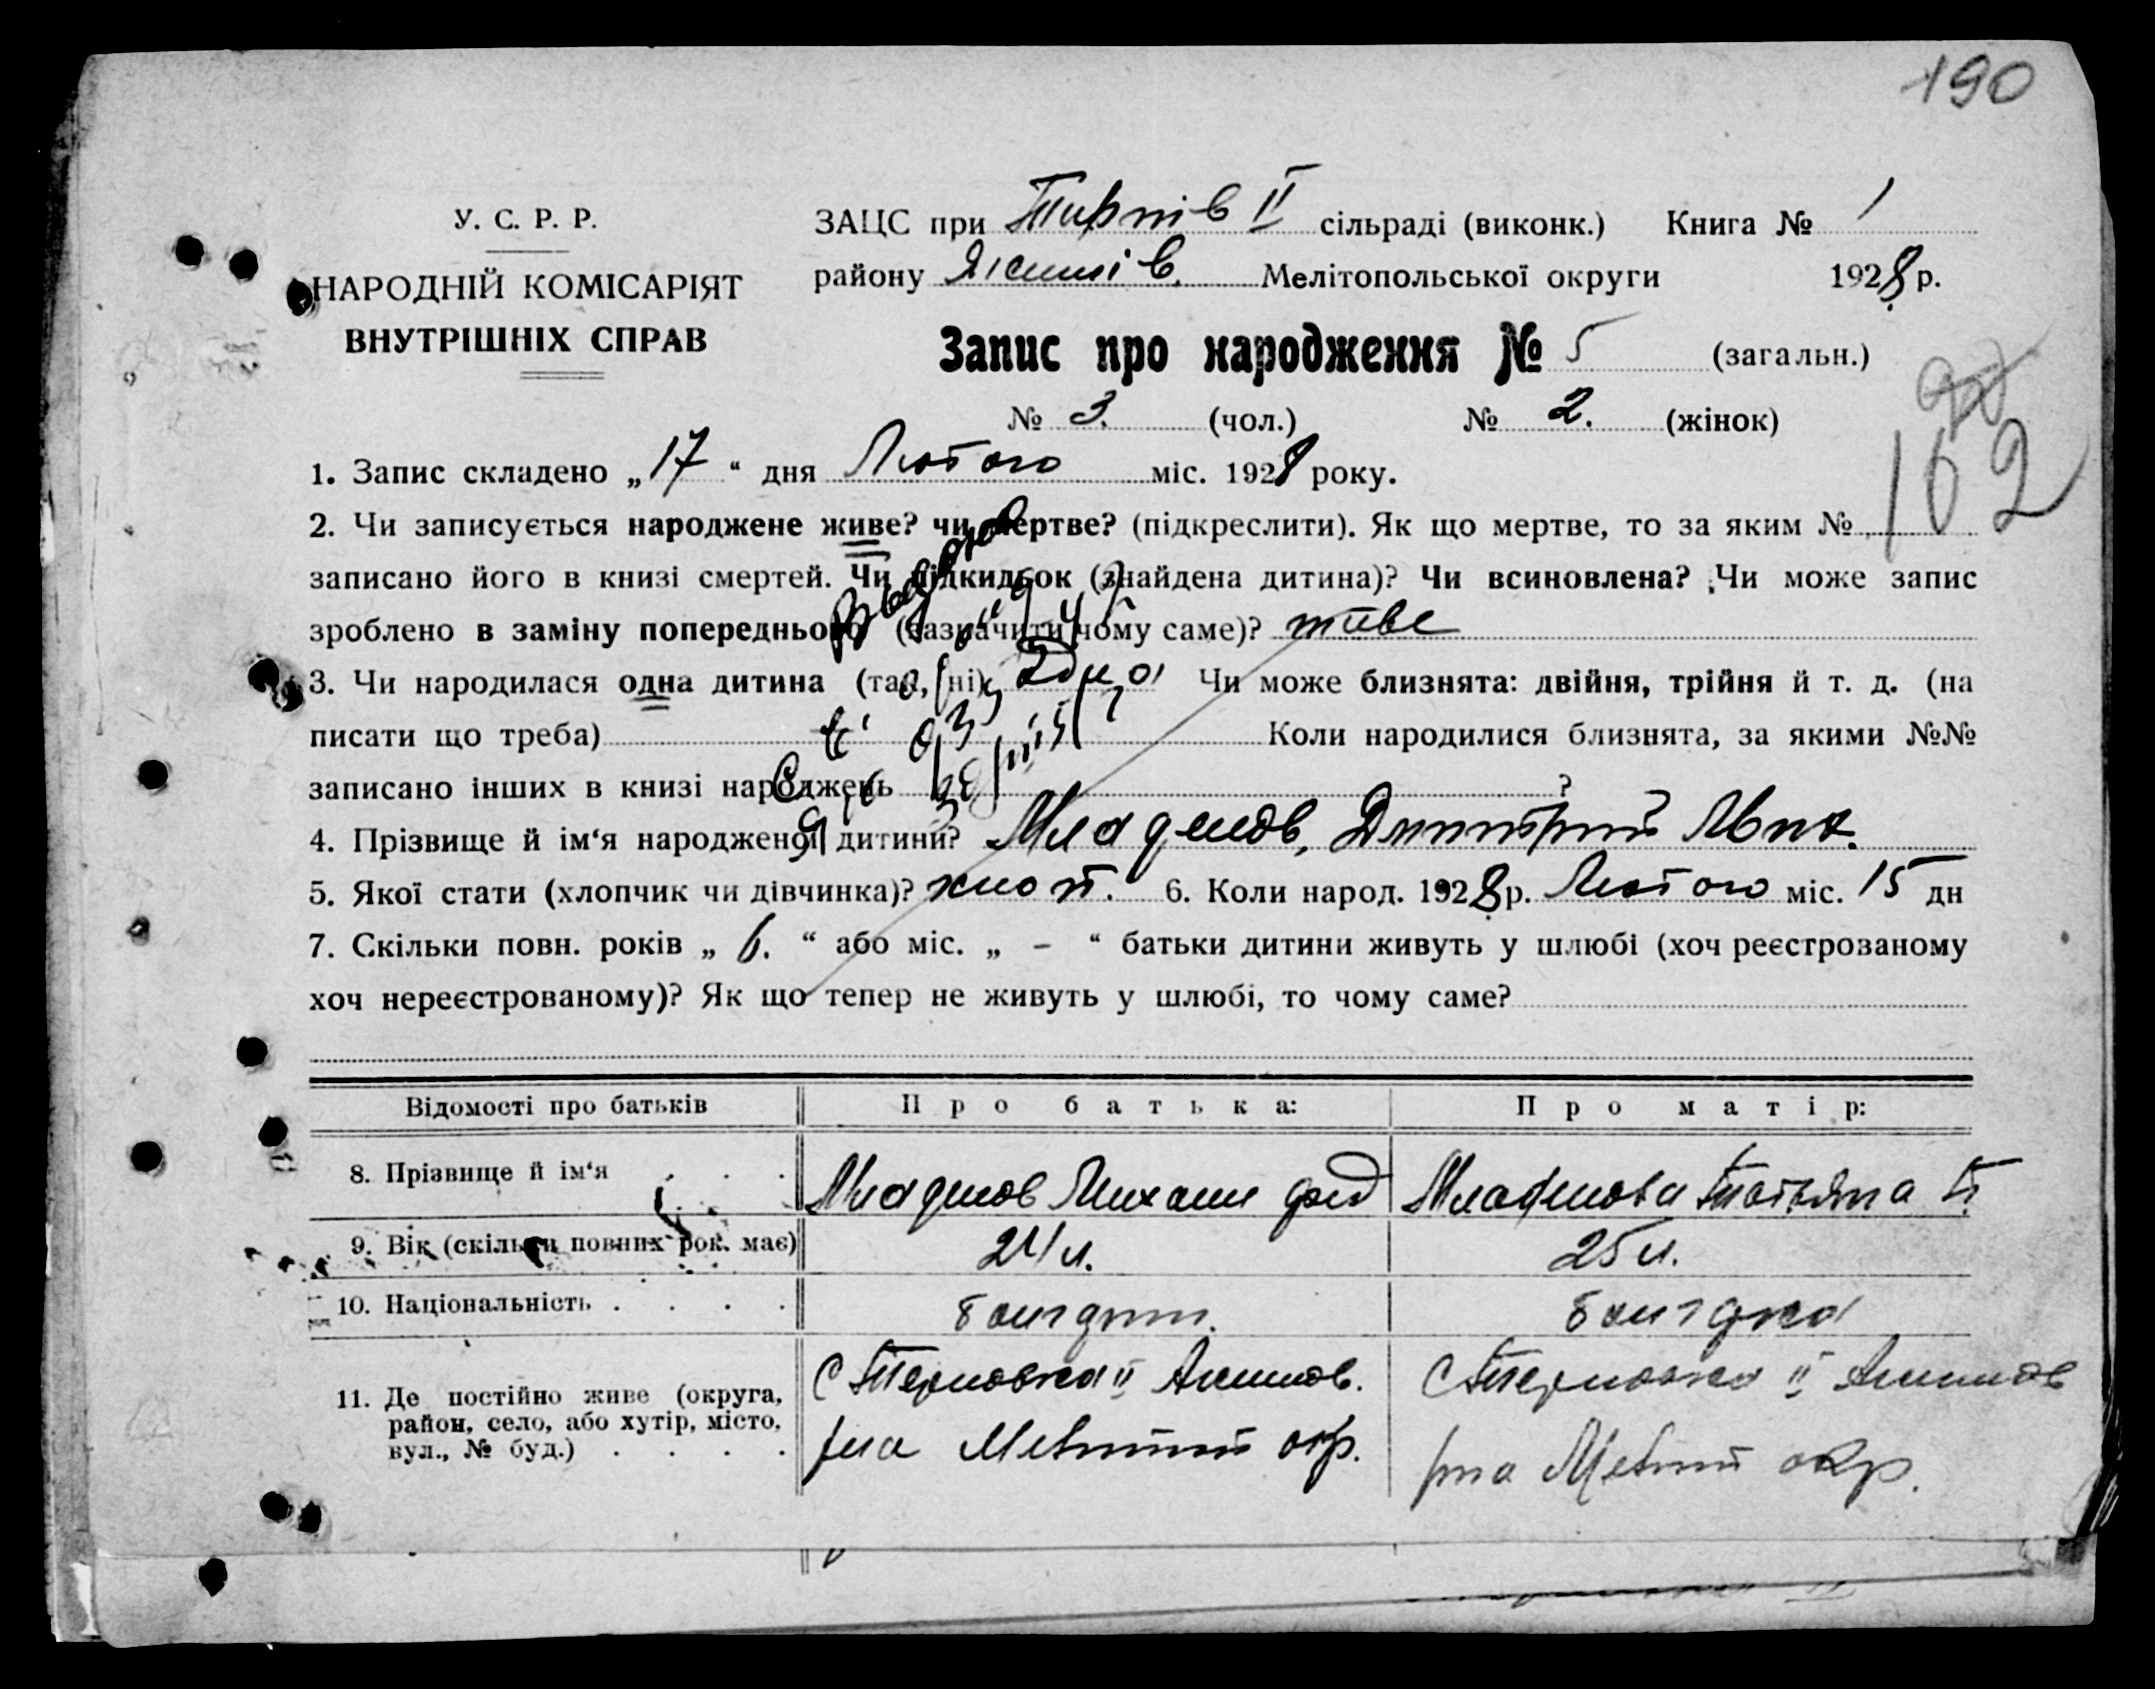 190
У. С. Р. Р.
НАРОДНІЙ КОМІСАРІЯТ
ВНУТРІШНІХ СПРАВ
ЗАЦС при II сільраді (виконк.) Книга № 1
району Мелітопольської округи 1928 р.
Запис про народження № 5 (загальн.)
№ 3. (чол.) № 2. (жінок)
162
1. Запис складено „17“ дня Лютого міс. 1928 року.
2. Чи записується народжене живе? чи мертве? (підкреслити). Як що мертве, то за яким №
записано його в книзі смертей. Чи підкидьок (знайдена дитина)? Чи всиновлена? Чи може запис
зроблено в заміну попереднього (зазначити чому саме)? живе
3. Чи народилася одна дитина (так, ні) Одна Чи може близнята: двійня, трійня й т. д. (на
писати що треба) Коли народилися близнята, за якими №№
записано інших в книзі народжень ?
4. Прізвище й ім‘я народженої дитини? Младенов, Дмитрий
5. Якої стати (хлопчик чи дівчинка)? 6. Коли народ. 1928 р. Лютого міс. 15 дн
7. Скільки повн. років „ 6. “ або міс. „ - “ батьки дитини живуть у шлюбі (хоч реєстрованому
хоч нереєстрованому)? Як що тепер не живуть у шлюбі, то чому саме?
Відомості про батьків Про батька: Про матір:
8. Прізвище й ім‘я Младенов Михаил Младенова Татьяна
9. Вік (скільки повних рок. має) 24 л. 25 л.
10. Національність Болгарин. Болгарка
11. Де постійно живе (округа, район, село, або хутір, місто, вул., № буд.)
С Терновка II Акимов. С Терновка II Акимов
р-на окр. р-на окр.